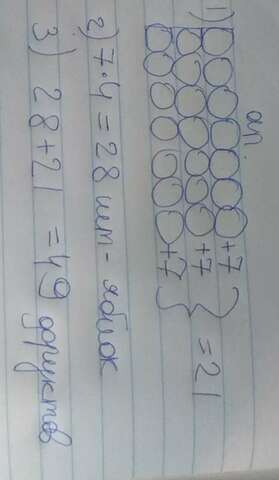 1) ап.
+7
+7 } = 21
+7
2) 7·4=28 шт - яблок
3) 28+21 =49 фруктов